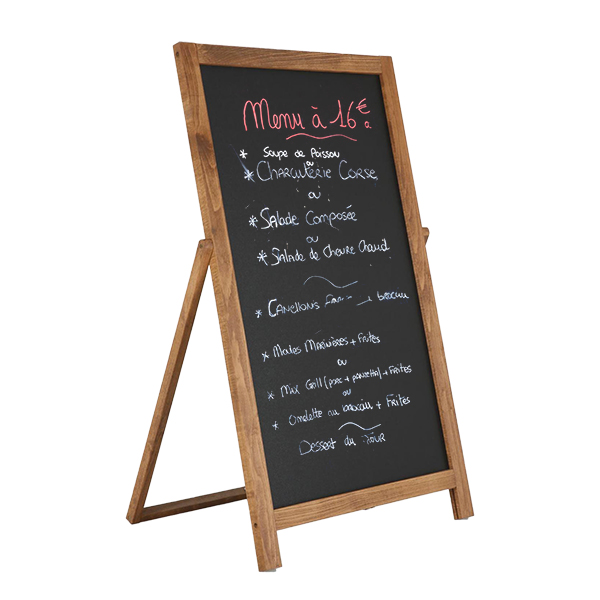 Menu à 16€
* Soupe de Poisson
ou
* Charcuterie Corse
ou
* Salade Composée
ou
* Salade de Chèvre Chaud
* Canellonis au brocciu
* Moules Marinières + Frites
ou
* Mix Grill (porc + pancetta) + Frites
ou
* Omelette au brocciu + Frites
Dessert du Jour